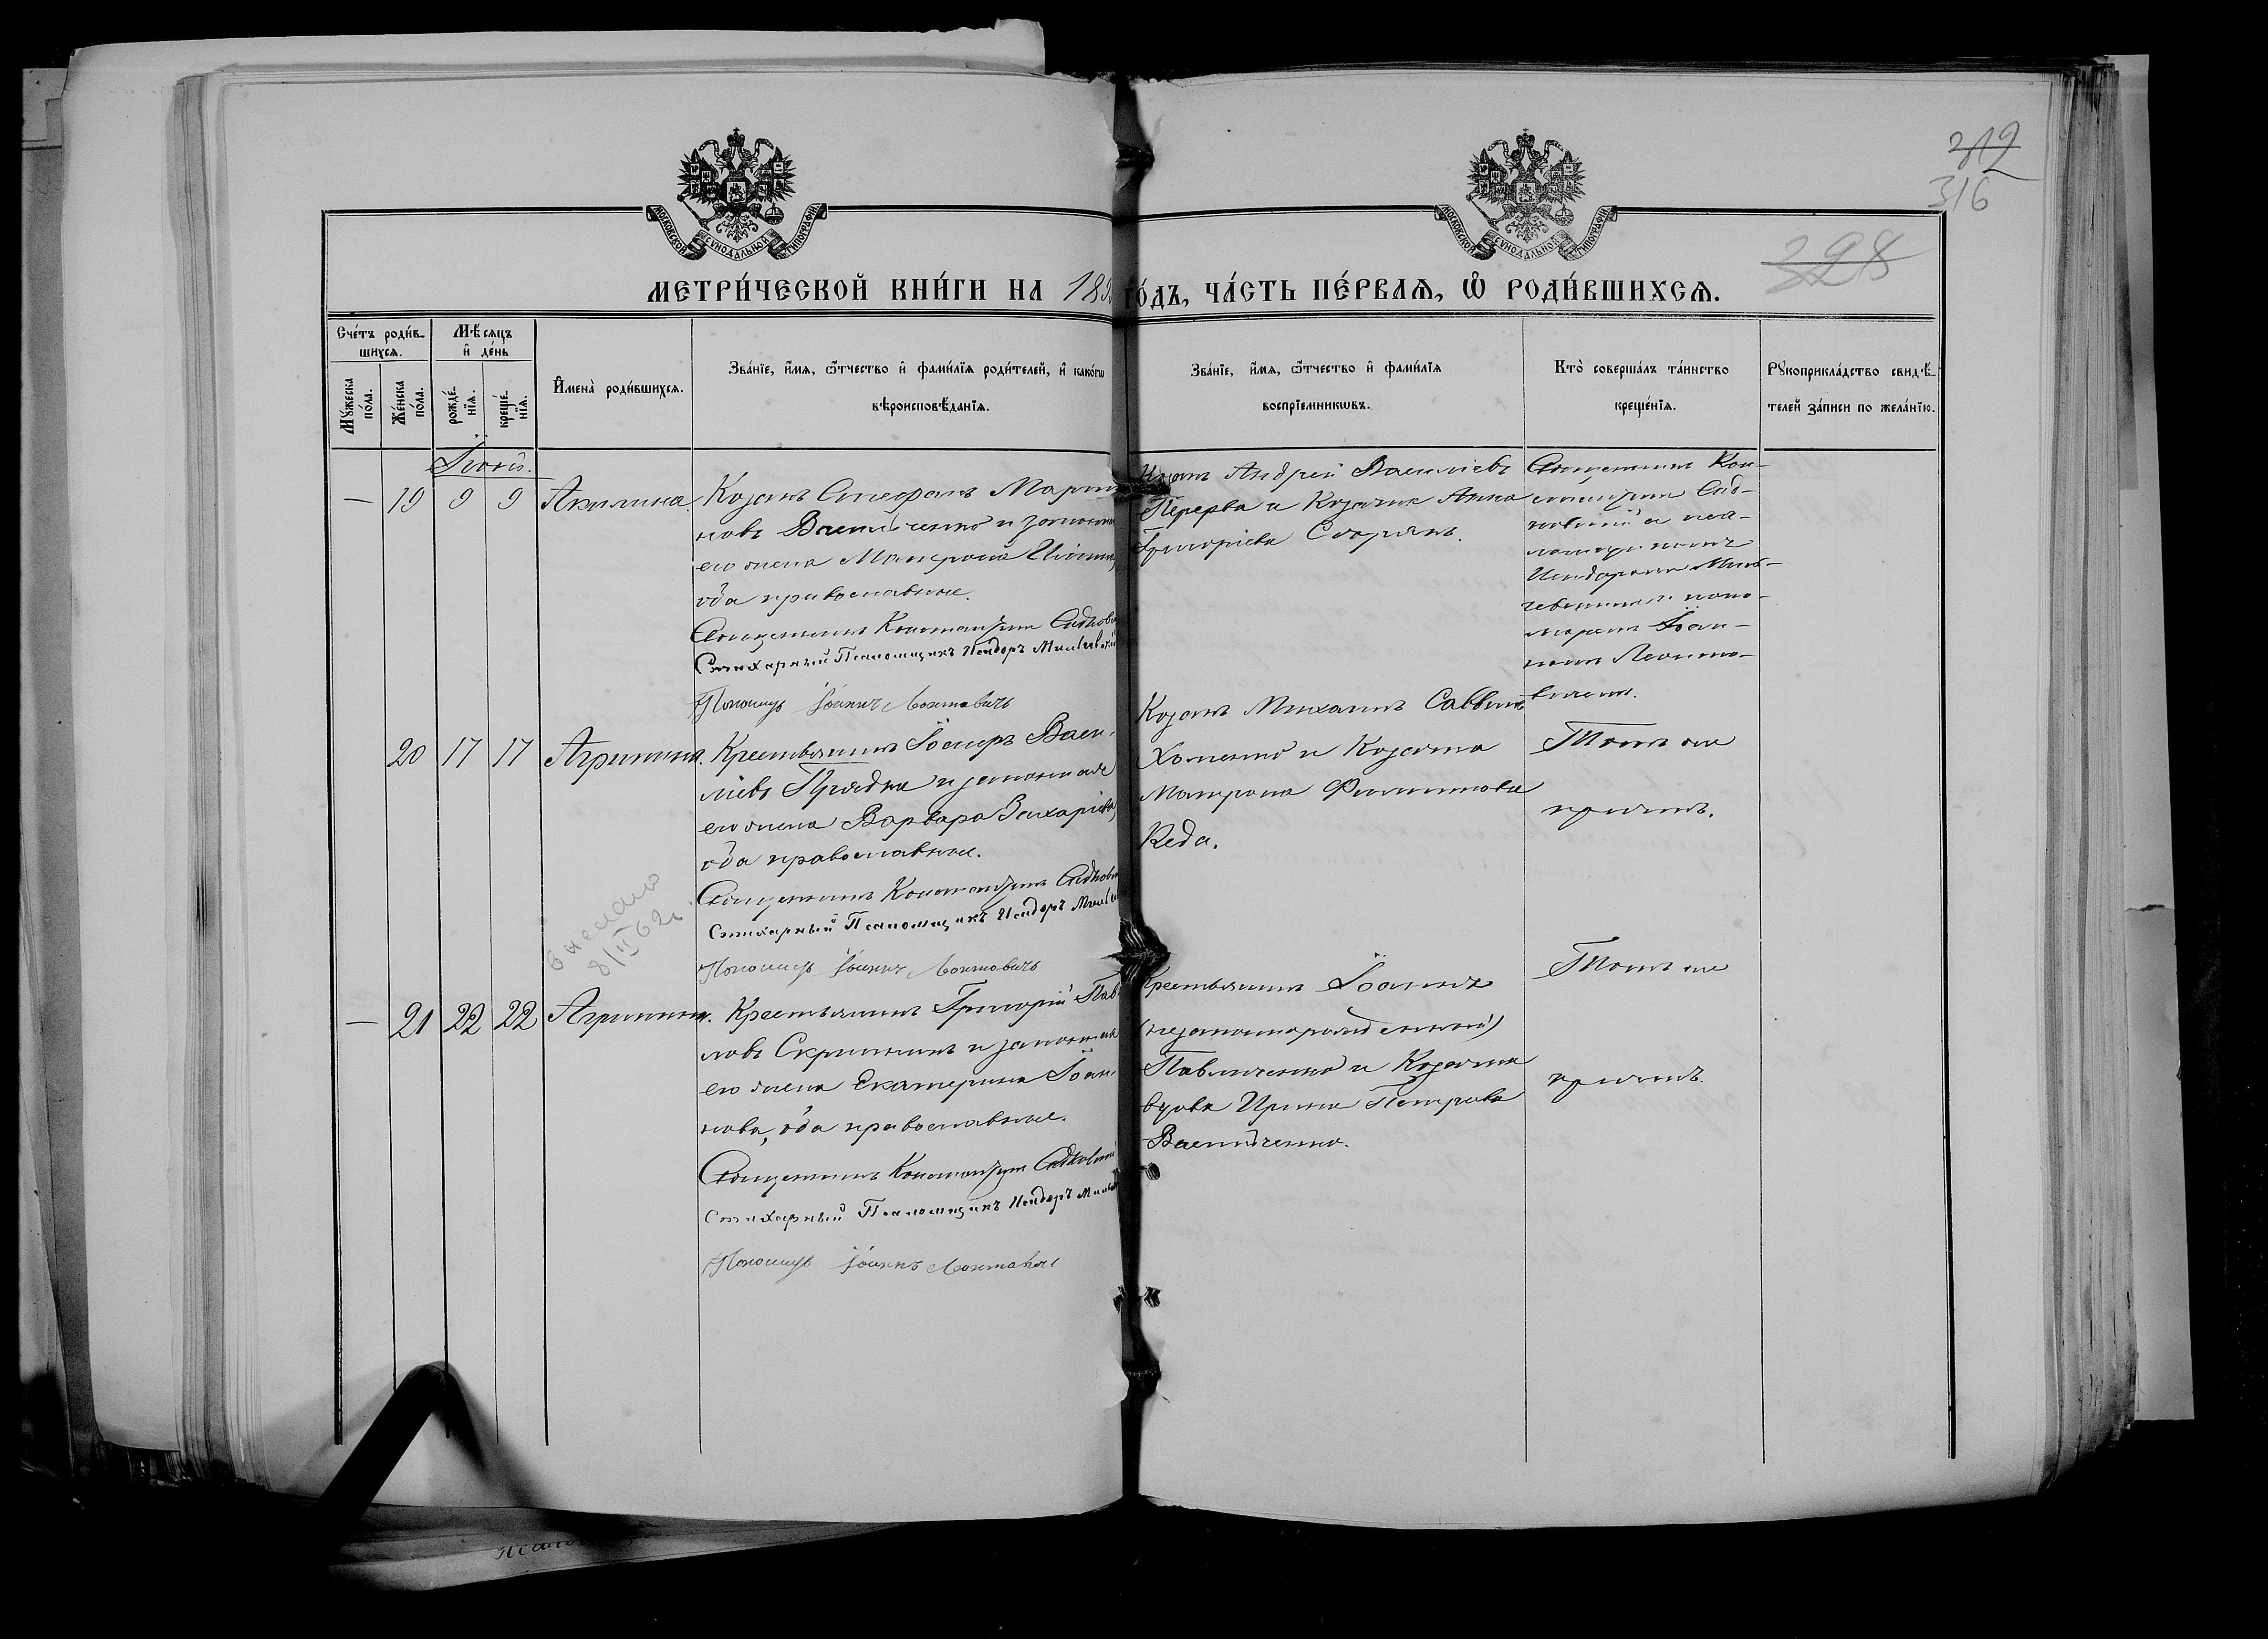 319
316
328
МОСКОВСКОЙ СѴНОДАЛЬНОЙ ТИПОГРАФІИ
МОСКОВСКОЙ СѴНОДАЛЬНОЙ ТИПОГРАФІИ
МЕТРИ́ЧЕСКОЙ КНИ́ГИ НА 18 ГО́ДЪ, ЧА́СТЬ ПЕ́РВАЯ, Ѡ҆ РОДИ́ВШИХСЯ.
Сче́тъ роди́в-
шихся.
Мѣ́сяцъ
и҆ де́нь
Мꙋ́жеска
по́ла.
Же́нска
по́ла.
рожде́-
нїя.
креще́-
нїя.
И҆мена̀ роди́вшихся.
Зва́нїе, и҆́мя, ѻ҆́тчество и҆ фами́лїя роди́телей, и҆ како́гѡ
вѣроисповѣ́данїя.
Зва́нїе, и҆́мя, ѻ҆́тчество и҆ фами́лїя
воспрїе́мникѡвъ.
Кто̀ соверша́лъ та́инство
креще́нїя.
Рꙋкоприкла́дство свидѣ́-
телей за́писи по жела́нїю.
Іюнь.
— 19 9 9 Акилина.
Козакъ Стефанъ Марти
новъ Васильченко и законна
его жена Матрона
оба православные.
Священникъ Константинъ Садкови
Стихарный Псаломщикъ Исидоръ
Пономарь Іоаннъ Леонтовичъ
Козакъ Андрей Васильевъ
Перерва и Козачка Анна
Григоріева
Священникъ Кон-
стантинъ Сад-
ковскій с пса-
ломщикомъ
Исидоромъ
и поно-
маремъ Іоан-
номъ Леонто-
вичемъ.
20 17 17 Агрипина.
Крестьянинъ Іосифъ Васи-
ліевъ Прядка и законная
его жена Варвара Захаріева,
оба православные.
Священникъ Константинъ Садкови
Стихарный Псаломщикъ Исидоръ
Пономарь Іоаннъ Леонтовичъ
Козакъ Михаилъ Саввинъ
Хоменко и Козачка
Матрона Филиппова
Кеда.
Тотъ же
причтъ.
выслано
8/II 62г.
— 21 22 22 Агрипина.
Крестьянинъ Григорій Пав-
ловъ Скрипникъ и законная
его жена Екатерина Іоан-
нова, оба православные.
Священникъ Константинъ Садковскій
Стихарный Псаломщикъ Исидоръ
Пономарь Іоаннъ Леонтовичъ
Крестьянинъ Іоаннъ
(незаконнорожденный)
Павличенко и Козачка
вдова Ирина Петрова
Васильченко.
Тотъ же
причтъ.